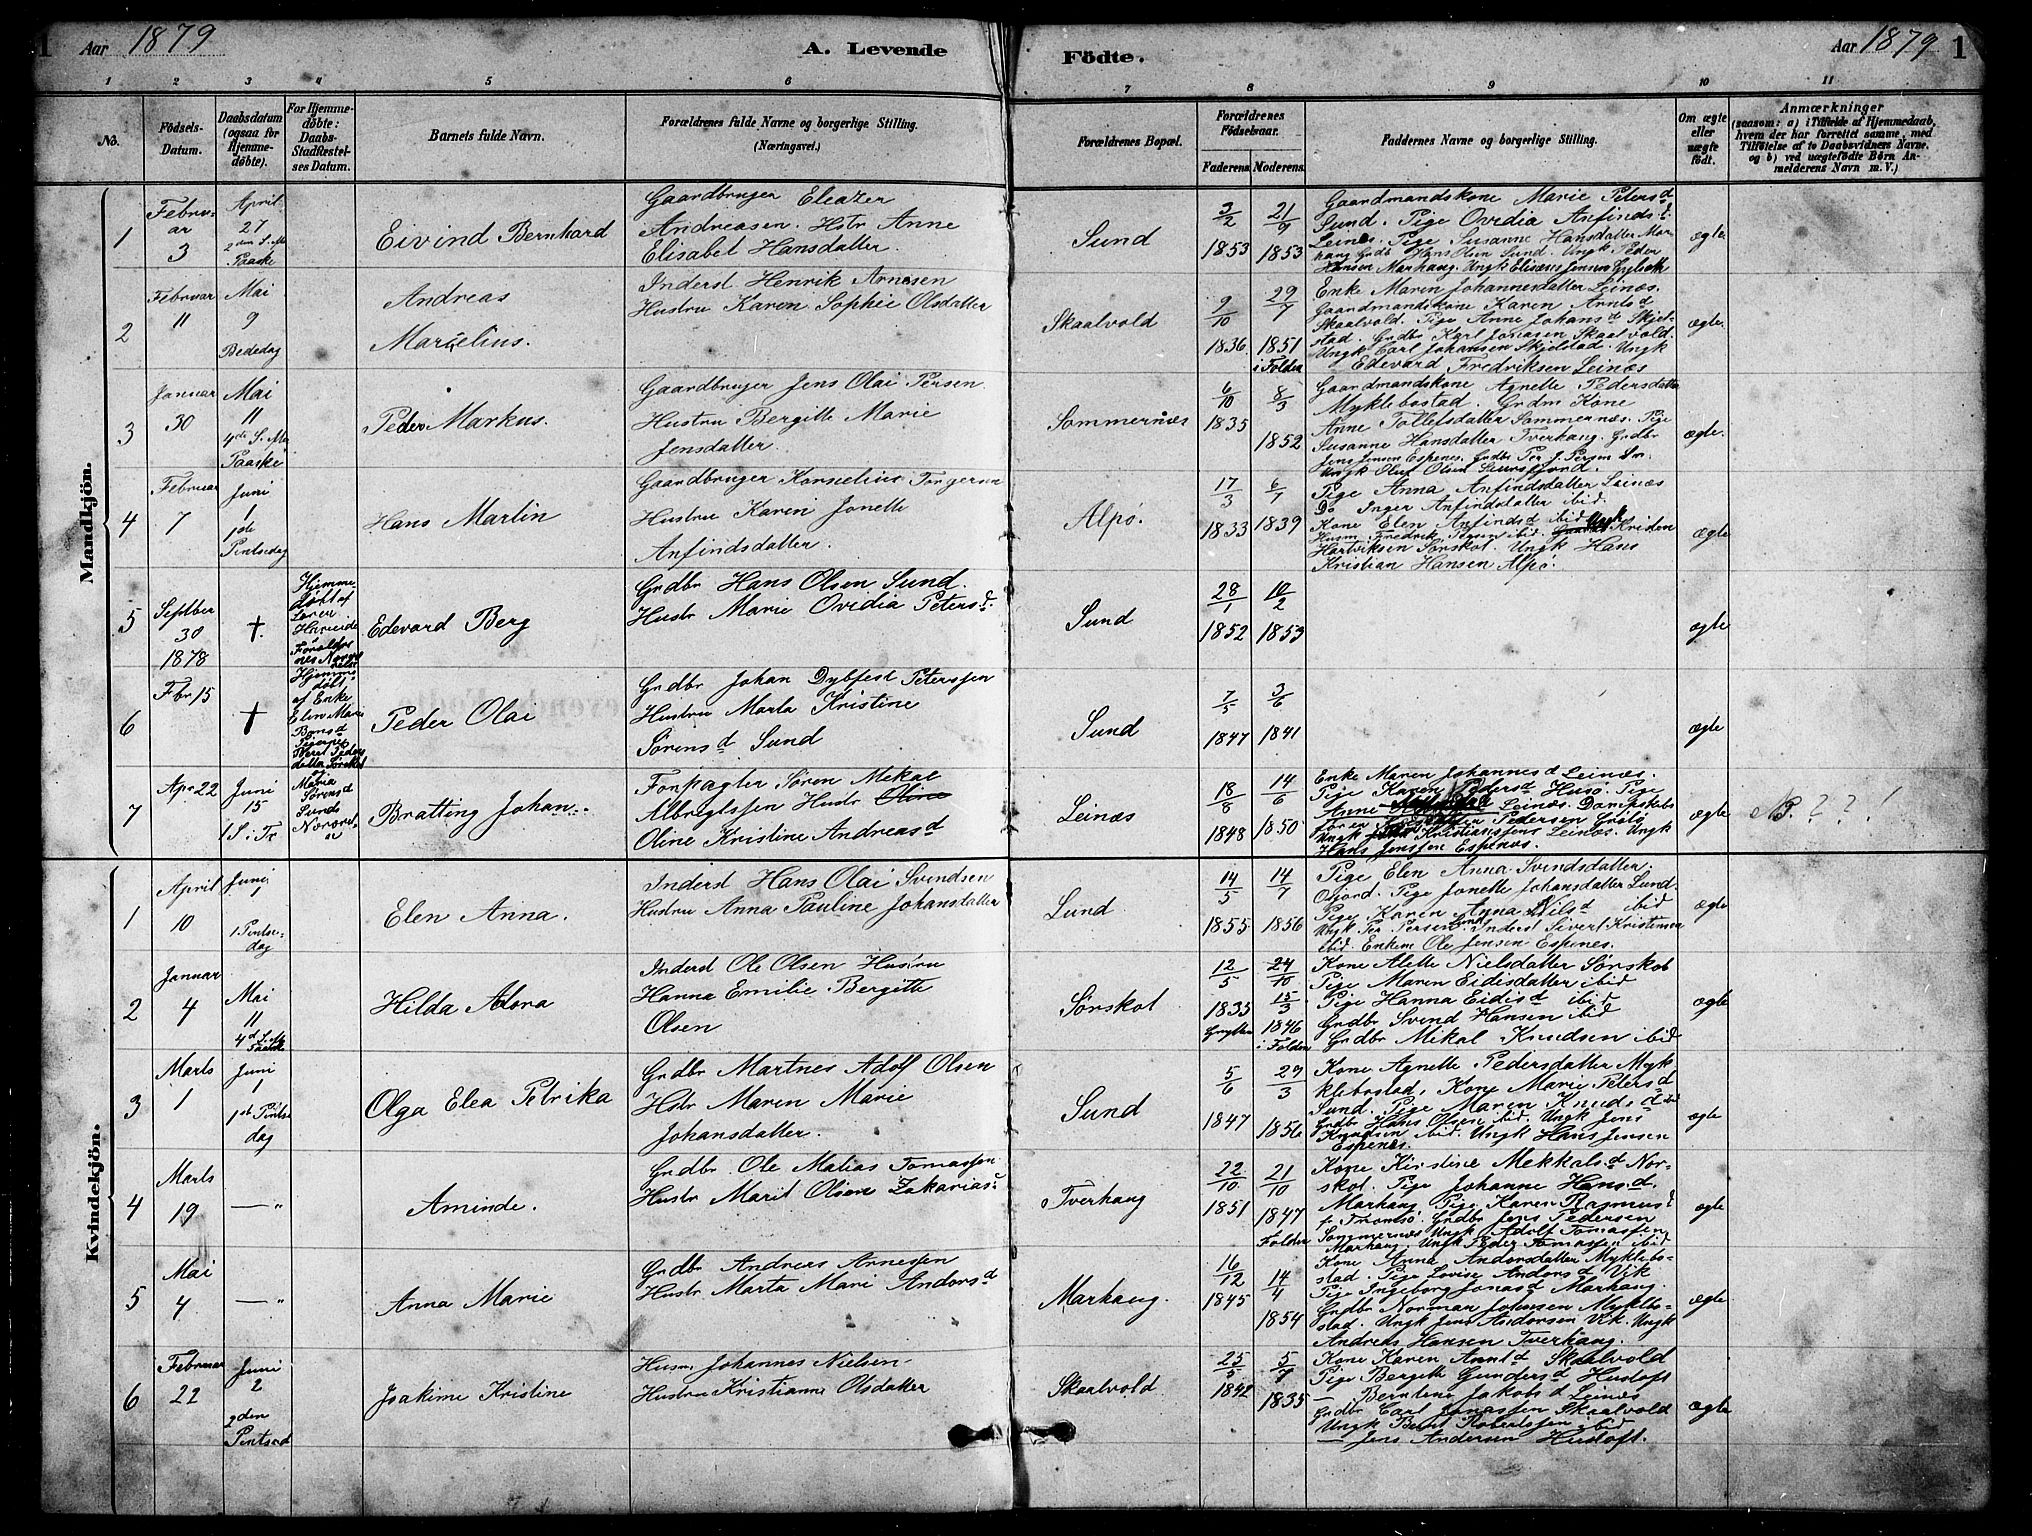 1 Aar 1879 A. Levende Födte. Aar 1879 1
1 2 3 4 5 6 7 8 9 10 11
No.
Födsels-Datum.
Daabsdatum (ogsaa for Hjemmedöbte).
For Hjemmedöbte: Daabs-Stadfæstelses Datum.
Barnets fulde Navn.
Forældrenes fulde Navne og borgerlige Stilling. (Næringsvei.)
Forældrenes Bopæl.
Forældrenes Födselsaar.
Faderens Moderens
Faddernes Navne og borgerlige Stilling.
Om ægte eller uægte födt.
Anmærkninger
(saasom: a) i Tilfælde af Hjemmedaab, hvem der har forrettet samme, med Tilföielse af to Daabsvidners Navne. og b) ved uægtefödte Börn Anmelderens Navn m.V.)
Mandkjön.
1
Februar
3
April
27
2den S. eft
Paaske
Eivind Bernhard
Gaardbruger Eleazer
Andreasen. Hstr Anne
Elisabet Hansdatter.
Sund
3/2 1853
21/9 1853
Gaardmandskone Marie Petersd
Sund. Pige Ovedia Anfindsd.
Leines. Pige Susanne Hansdatter Mar-
hang Grdb Hans Olsen Sund. Ungk Peder
Hansen Marhaug. Ungk Eliseus Jensen Gylseth
ægte
2
Februar
11
Mai
9
Bededag
Andreas
Marselius.
Inderst Henrik Arnesen
Hustru Karen Sophie Olsdatter
Skaalvold
9/10 1836
29/7 1851
i Folden
Enke Maren Johannesdatter Leinæs.
Gaardmandskone Karen Arntsd
Skaalvold. Pige Anne Johansd Skjel-
stad. Grdbr Karl Jonasen Skaalvold.
Ungk Carl Johansen Skjelstad. Ungk
Edevard Fredriksen Leinæs
ægte
3
Januar
30
Mai
11
4de S. Ma
Paaske
Peder Markus.
Gaardbruger Jens Olai Persen
Hustru Bergitte Marie
Jensdatter.
Sommernæs
6/10 1835
8/3 1852
Gaardmandskone Agnette Pedersdatter
Myklebostad. Grdm Kone
Anne Tollefsdatter Sommernæs. Pige
Susanne Hansdatter Tverhaug. Grdbr
Jens Jensen Espenes. Grdbr Per J. Persen Sm.
Ungk Oluf Olsen Leinesfjord.
ægte.
4
Februar
7
Juni
1
1ste
Pintsedag
Hans Martin
Gaardbruger Kornelius Torgersen
Hustru Karen Jonette
Anfindsdatter.
Alpø.
17/3 1833
6/7 1839
Pige Anna Anfindsdatter Leinæs
Do Inger Anfindsdatter ibid
Kone Elen Anfindsd ibid Ungk Kristen
Husm Fredrik Persen ibid.
Hartviksen Sørskot. Ungk Hans
Kristian Hansen Alpø.
ægte
5
Septber
30
1878
†.
Hjemme-
døbt af
Edevard Berg
Grdbr Hans Olsen Sund.
Hustr Marie Ovedia Petersd.
Sund
28/1 1852
10/2 1853
ægte
6
Fbr 15
†
Hjemme
døbt
af Enke
Elen Marie
Peder Olai
Grdbr Johan Dybfest Peterssen
Hustru Marta Kristine
Sørensd Sund
Sund
7/5 1847
3/6 1841
ægte
7
Apr 22
Juni
15
1 S. i Tr
og
Maria
Sørensd
Sund
Bratting Johan
Forpagter Søren Mekal
Albregtssen Hustr Oline
Oline Kristine Andreasd
Leinæs
18/8 1848
14/6 1850
Enke Maren Johannesd Leinæs.
Pige Karen Pedersd Husø. Pige
Anne Leinæs. Dampskibs
Pedersen Grøtø
Ungk Kristianssens Leinæs. Ungk
Hans Jenssen Espenæs.
ægte
NB. ? ? !
Kvindekjön.
1
April
10
Juni
1
1. Pintse-
dag
Elen Anna.
Inderst Hans Olai Svendsen
Hustru Anna Pauline Johansdatter
Lund
14/5 1855
14/7 1856
Pige Elen Anna Svendsdatter.
Osjord. Pige Jonette Johansdatter Lund
Pige Karen Anna Nilsd ibid
Ungk. Per Persen Lund Inderst Sivert Kristensen
ibid. Enkem Ole Jensen Espenes.
ægte
2
Januar
4
Mai
11
4d S. eft
Paaske
Hilda Alora
Inderst Ole Olsen Hustru
Hanna Emilie Bergitte
Olsen
Sørskot
12/5 1835
24/10
15/3 1846
i Folden
Kone Alette Nielsdatter Sørskot
Pige Maren Eidisdatter ibid
Pige Hanna Eidisd ibid
Grdbr Svend Hansen ibid
Grdbr Mikal Knudsen ibid
ægte
3
Marts
1
Juni
1
1st Pintse
dag
Olga Elea Petrika
Grdbr Martnes Adolf Olsen
Hstr Maren Marie
Johansdatter.
Sund
5/6 1847
29/3 1856
Kone Agnette Pedersdatter Myk-
klebostad, Kone Marie Petersd
Sund. Pige Maren Knudsd ibid
Grdbr Hans Olsen ibid. Ungk Jens
Knudsen ibid. Ungk Hans Jensen
Espenes.
ægte
4
Marts
19
— "
Aminde.
Grdbr. Ole Matias Tomassen
Hustr Marit Olsen Zakariasd
Tverhaug
22/10 1851
21/10 1847
Folden
Kone Kirstine Mekkalsd Nor-
skot. Pige Johanne Hansd.
Marhaug Pige Karen Rasmusd
fr Tromsø. Grdbr Jens Pedersen
Sommernæs Ungk Adolf Tomassen
Marhaug Ungk Peder Tomassen ibid
ægte
5
Mai
4
— "
Anna Marie
Grdbr Andreas Arnessen
Hustr Marta Marie Andorsd
Marhaug.
16/12 1845
14/4 1854
Kone Anna Andorsdatter Myklebo-
stad. Pige Lovise Andorsd Vik
Pige Ingeborg Jonasd Marhaug
Grdbr Norman Johansen Myklebo-
stad. Ungk Jens Andorsen Vik. Ungk
Andreas Hansen Tverhaug.
ægte
6
Februar
22
Juni
2
2den
Pintsed
Joakime Kristine
Husm. Johannes Nielsen
Hustru Kristianne Olsdatter
Skaalvold.
25/5 1842
5/7 1835
Kone Karen Arntd Skaalvold
Pige Bergitte Gundersd Husloft
— Berntene Jakobsd Leinæs
Grdbr Carl Jonassen Skaalvold
Ungk Bernt Robertssen ibid
— Jens Andersen Husloft.
ægte